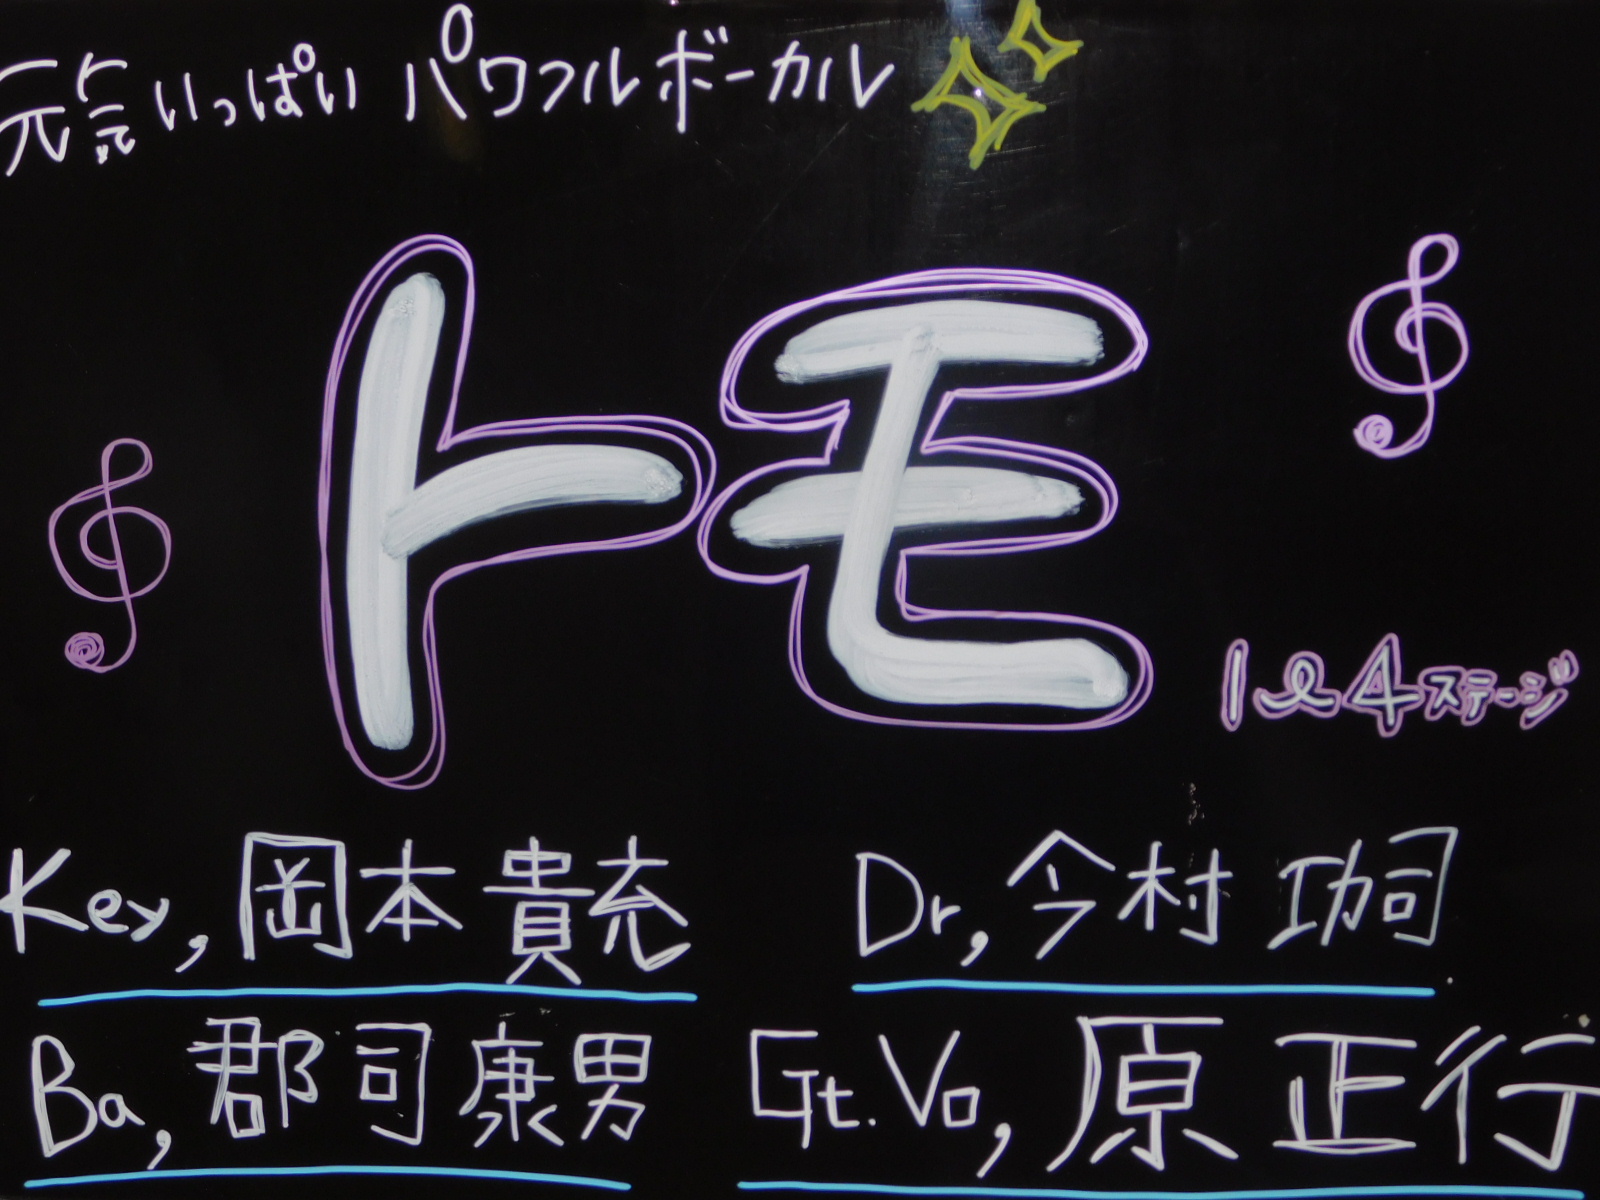 元気いっぱい パワフルボーカル
トモ
1&4ステージ
Key, 岡本 貴充 Dr, 今村 功司
Ba, 郡司 康男 Gt.Vo, 原 正行